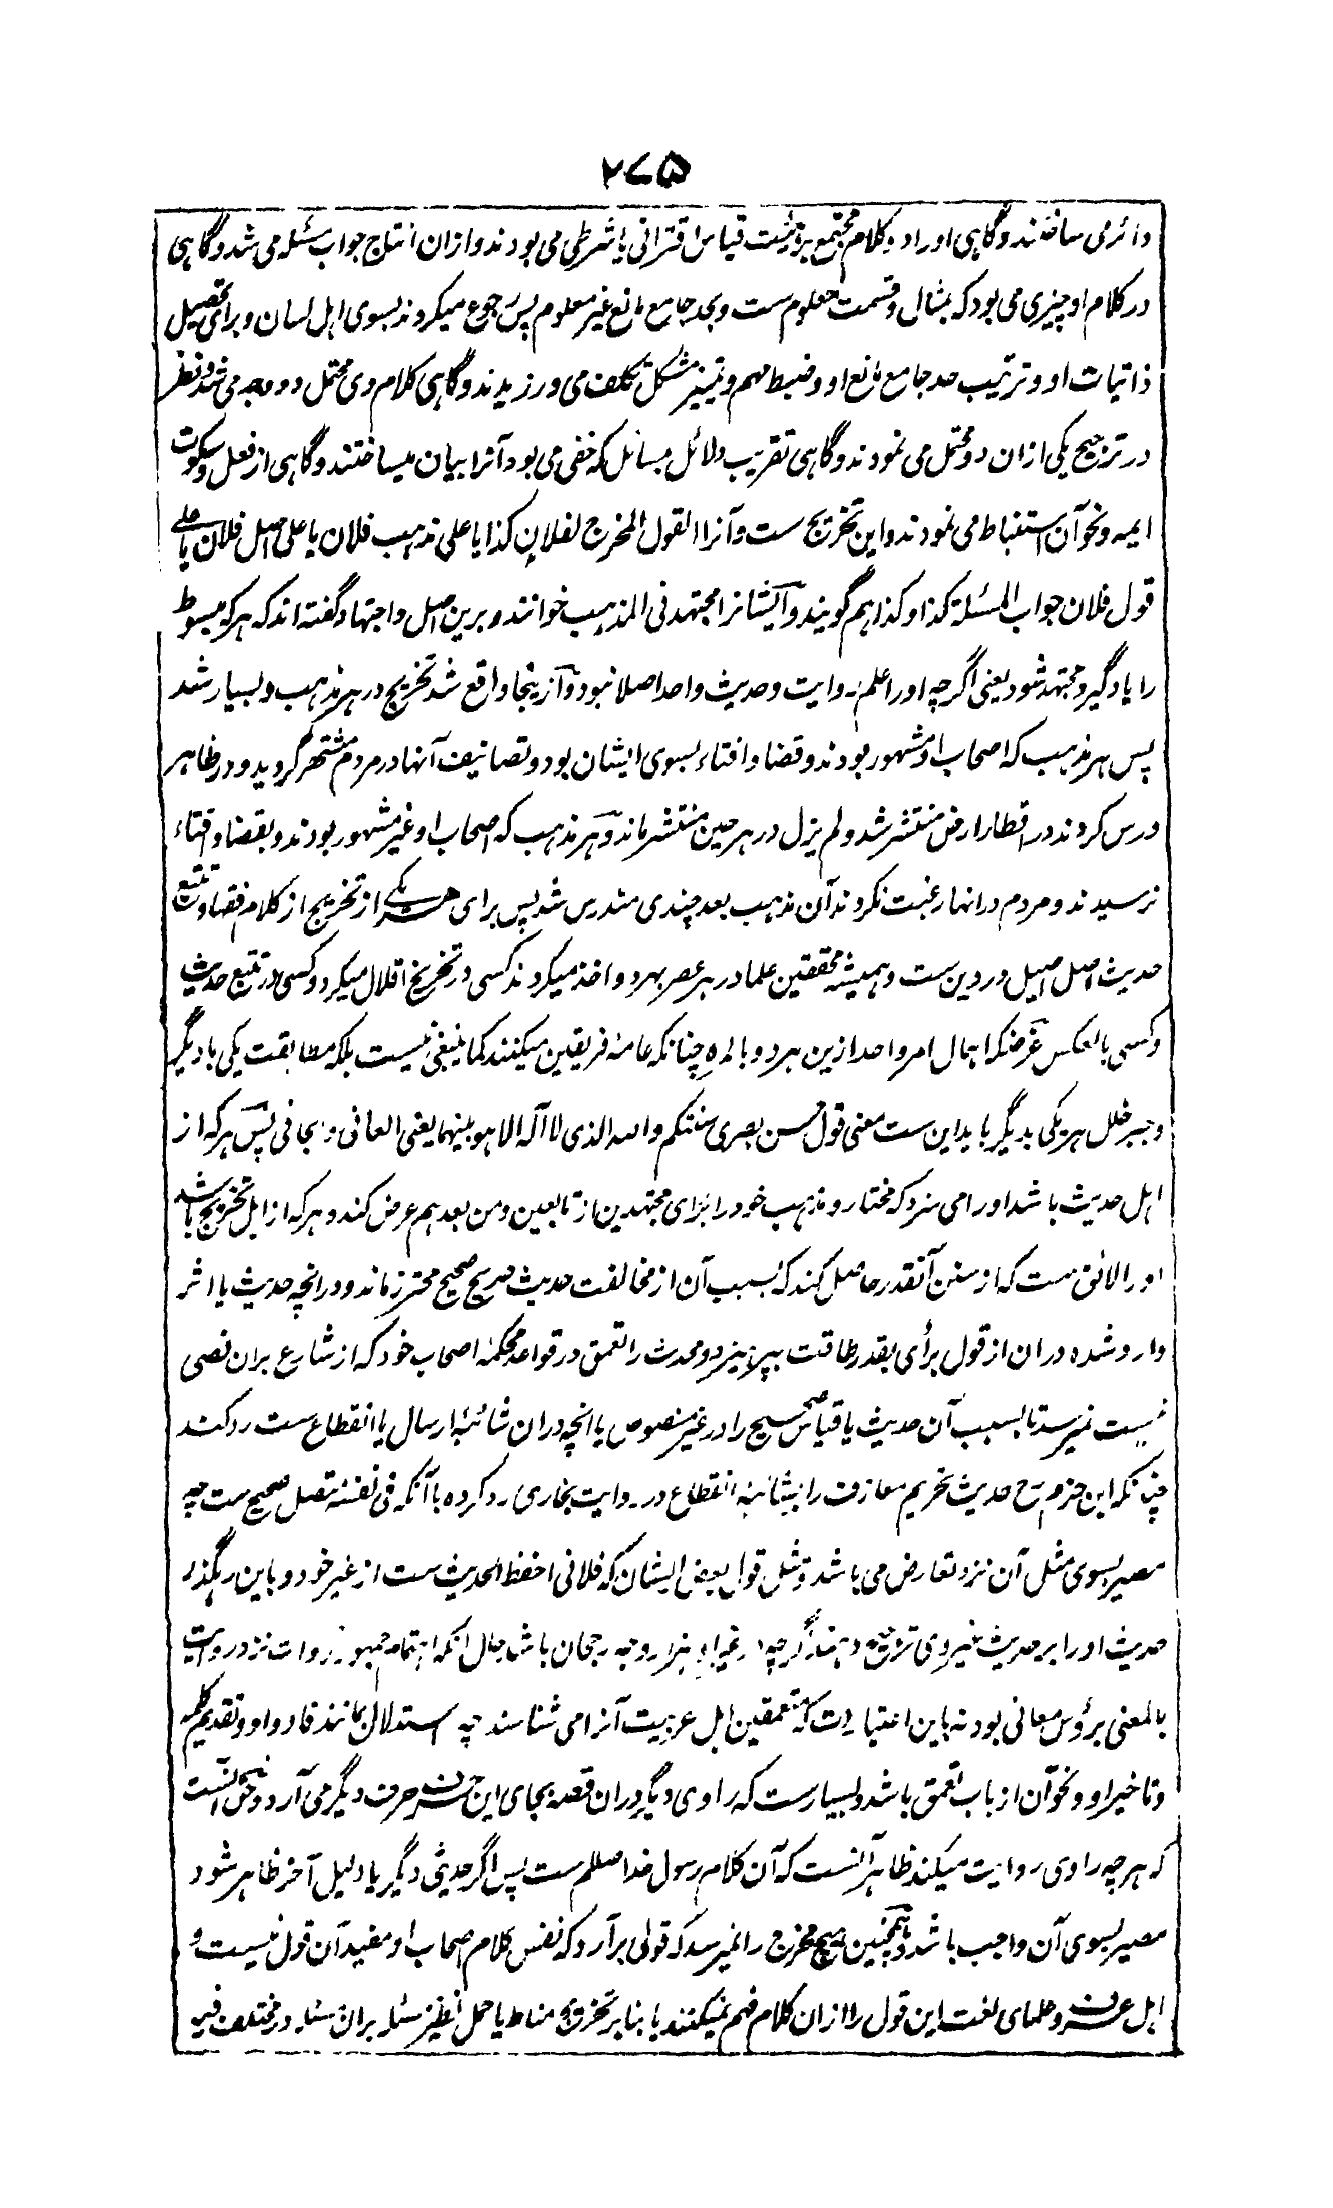 ۲۷۵
دائر می ساختند و گاهی او را دو کلام مجتمع بر هیئت قیاس اقترانی یا شرطی می بودند و ازان انتاج جواب مسئله می شد و گاهی
در کلام او چیزی می بود که بمثال و قسمت معلوم ست و بحد جامع مانع غیر معلوم پس رجوع میکردند بسوی اهل لسان و برای تحصیل
ذاتیات او و ترتیب حد جامع مانع او و ضبط مبهم و تمییز مشکل تکلف می ورزیدند و گاهی کلام وی محتمل دو وجه می شد و نظر
در ترجیح یکی ازان دو محتمل می نمودند و گاهی تقریب دلائل مسائل که خفی می بود آنرا بیان میساختند و گاهی از فعل و سکوت
ایمه و نحو آن استنباط می نمودند و این تخریج ست و آنرا القول المخرج لفلان کذا یا علی مذهب فلان یا علی اصل فلان یا علی
قول فلان جواب المسئلة کذا و کذا هم گویند و ایشانرا مجتهد فی المذهب خوانند و برین اصل و اجتهاد گفته اند که هر که مبسوط
را یاد گیرد مجتهد شود یعنی اگرچه او را علم بروایت و حدیث واحد اصلا نبود و از ینجا واقع شد تخریج در هر مذهب و بسیار شد
پس هر مذهب که اصحاب او مشهور بودند و قضا و افتاء بسوی ایشان بود و تصانیف آنها در مردم مشتهر گردید و در ظاهر
درس کردند در اقطار ارض منتشر شد و لم یزل در هر حین منتشر ماند و هر مذهب که اصحاب او غیر مشهور بودند و بقضا و افتاء
نرسیدند و مردم در انها رغبت نکردند آن مذهب بعد چندی مندرس شد پس برای هر یکے از تخریج از کلام فقها و تتبع
حدیث اصل اصیل در دین ست و همیشه محققین علما در هر عصر بهر دو اخذ میکردند کسی در تخریج اقلال میکرد و کسی در تتبع حدیث
و کسی بالعکس غرضکه اهمال امر واحد ازین هر دو بالمره چنانکه عامه فریقین میکنند کما ینبغی نیست بلکه مطابقت یکی با دیگر
و جبر خلل هر یکی بدیگر باید این ست معنی قول حسن بصری سنتکم والله الذی لا آله الا هو بینهما یعنی الغالی و الجافی پس هر که از
اهل حدیث باشد او را می سزد که مختار و مذهب خود را برای مجتهدین از تابعین و من بعدهم عرض کند و هر که از اهل تخریج باشد
او را لائق ست که از سنن آنقدر حاصل کند که بسبب آن از مخالفت حدیث صریح صحیح محترز ماند و درانچه حدیث یا اثر
وارد شده دران از قول برأی بقدر طاقت بپرهیزد و محدث را تعمق در قواعد محکمه اصحاب خود که از شارع بران نصی
نیست نمیرسد تا بسبب آن حدیث یا قیاس صحیح را در غیر منصوص یا انچه دران شائبه ارسال یا انقطاع ست رد کند
چنانکه ابن حزم رح حدیث تحریم معازف را بشائبه انقطاع در روایت بخاری رد کرده با آنکه فی نفسه متصل صحیح ست چه
مصیر بسوی مثل آن نزد تعارض می باشد و مثل قول بعض ایشان که فلانی احفظ الحدیث ست از غیر خود و باین رهگذر
حدیث او را بر حدیث غیر وی ترجیح دهند اگرچه در غیر او هزار وجه رجحان باشد حال انکه اهتمام جمهور روات نزد روایت
بالمعنی برؤس معانی بود نه باین اعتبارات که متعمقین اهل عربیت آنرا می شناسند چه استدلال مانند فا و واو و تقدیم کلمه
و تاخیر او و نحو آن از باب تعمق باشد و بسیارست که راوی دیگر دران قصه بجای این حرف حرف دیگر می آرد و حق آنست
که هر چه راوی روایت میکند ظاهر آنست که آن کلام رسول خدا صللم ست پس اگر حدیثی دیگر یا دلیل آخر ظاهر شود
مصیر بسوی آن واجب باشد و همچنین هیچ مخرج را نمیرسد که قولی برآرد که نفس کلام اصحاب او مفید آن قول نیست و
اهل عرف و علمای لغت این قول را ازان کلام فهم نمیکنند یا بنا بر تخریج مناط یا حمل نظیر مسئله بران مسئله در مختلف فیه